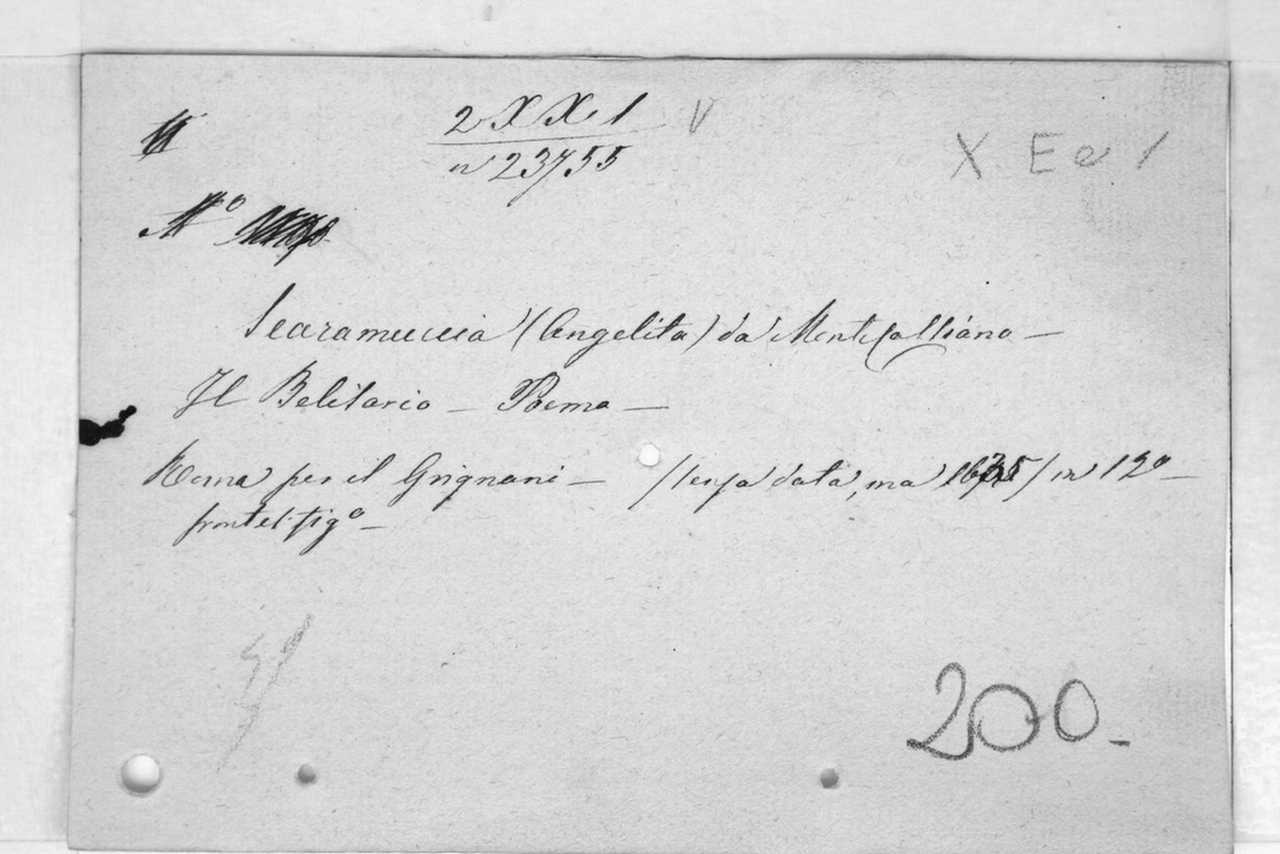 2 X X. 1 V
n 23755
X E e 1
No
Scaramuccia (Angelita) da Monte Calliano —
Il Belisario — Poema —
Roma per il Grignani — (senza data, ma 1635) in 12o —
frontesp. figo —
200 -